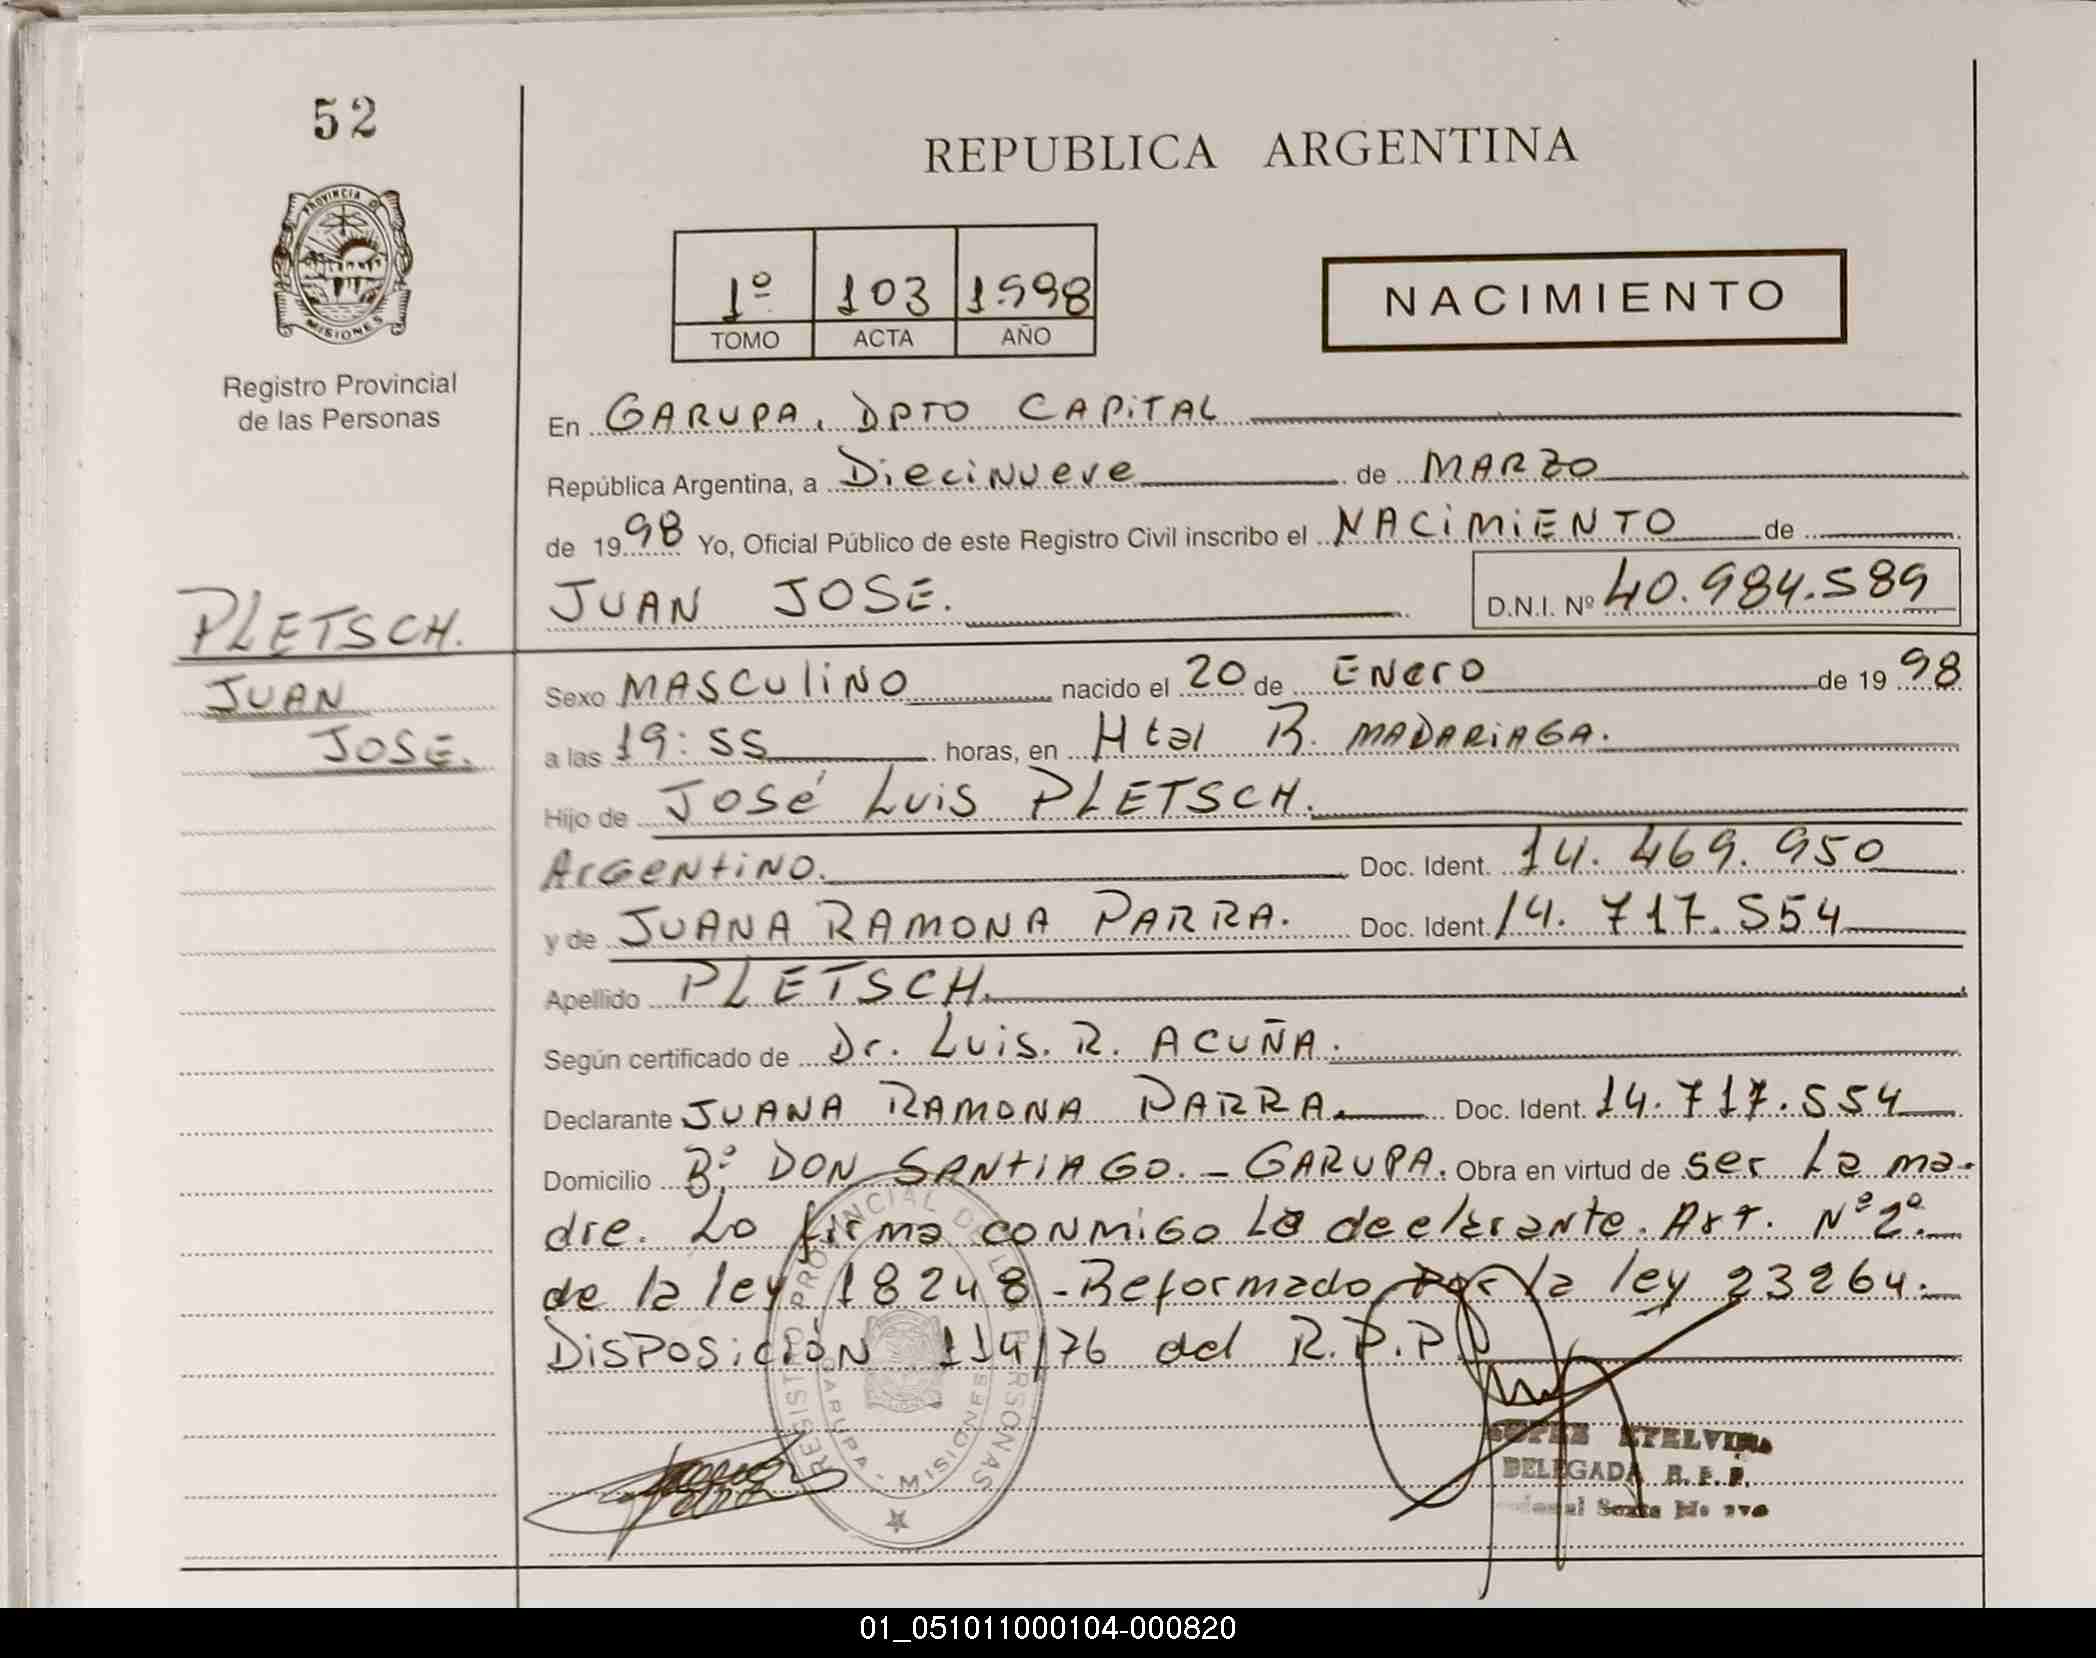 52
REPUBLICA ARGENTINA
PROVINCIA D
MISIONES
1º 103 1998
TOMO ACTA AÑO
NACIMIENTO
Registro Provincial
de las Personas
En GARUPA, DPTO CAPITAL
República Argentina, a Diecinueve de MARZO
de 1998 Yo, Oficial Público de este Registro Civil inscribo el NACIMIENTO de
JUAN JOSE. D.N.I. Nº 40.984.589
PLETSCH.
JUAN
JOSE.
Sexo MASCULINO nacido el 20 de Enero de 1998
a las 19:55 horas, en Htal R. MADARIAGA.
Hijo de José Luis PLETSCH.
Argentino. Doc. Ident. 14.469.950
y de JUANA RAMONA PARRA. Doc. Ident. 14.717.554
Apellido PLETSCH.
Según certificado de Dr. Luis. R. ACUÑA.
Declarante JUANA RAMONA PARRA. Doc. Ident. 14.717.554
Domicilio Bº DON SANTIAGO. - GARUPA. Obra en virtud de ser La ma-
dre. Lo firma conmigo La declarante. Art. Nº 2º.
de la ley 18248 - Reformado por la ley 23264.
Disposición 114/76 del R.P.P
REGISTRO PROVINCIAL DE LAS PERSONAS
GARUPA - MISIONES
LOPEZ ETELVINA
DELEGADA R.P.P.
01_051011000104-000820